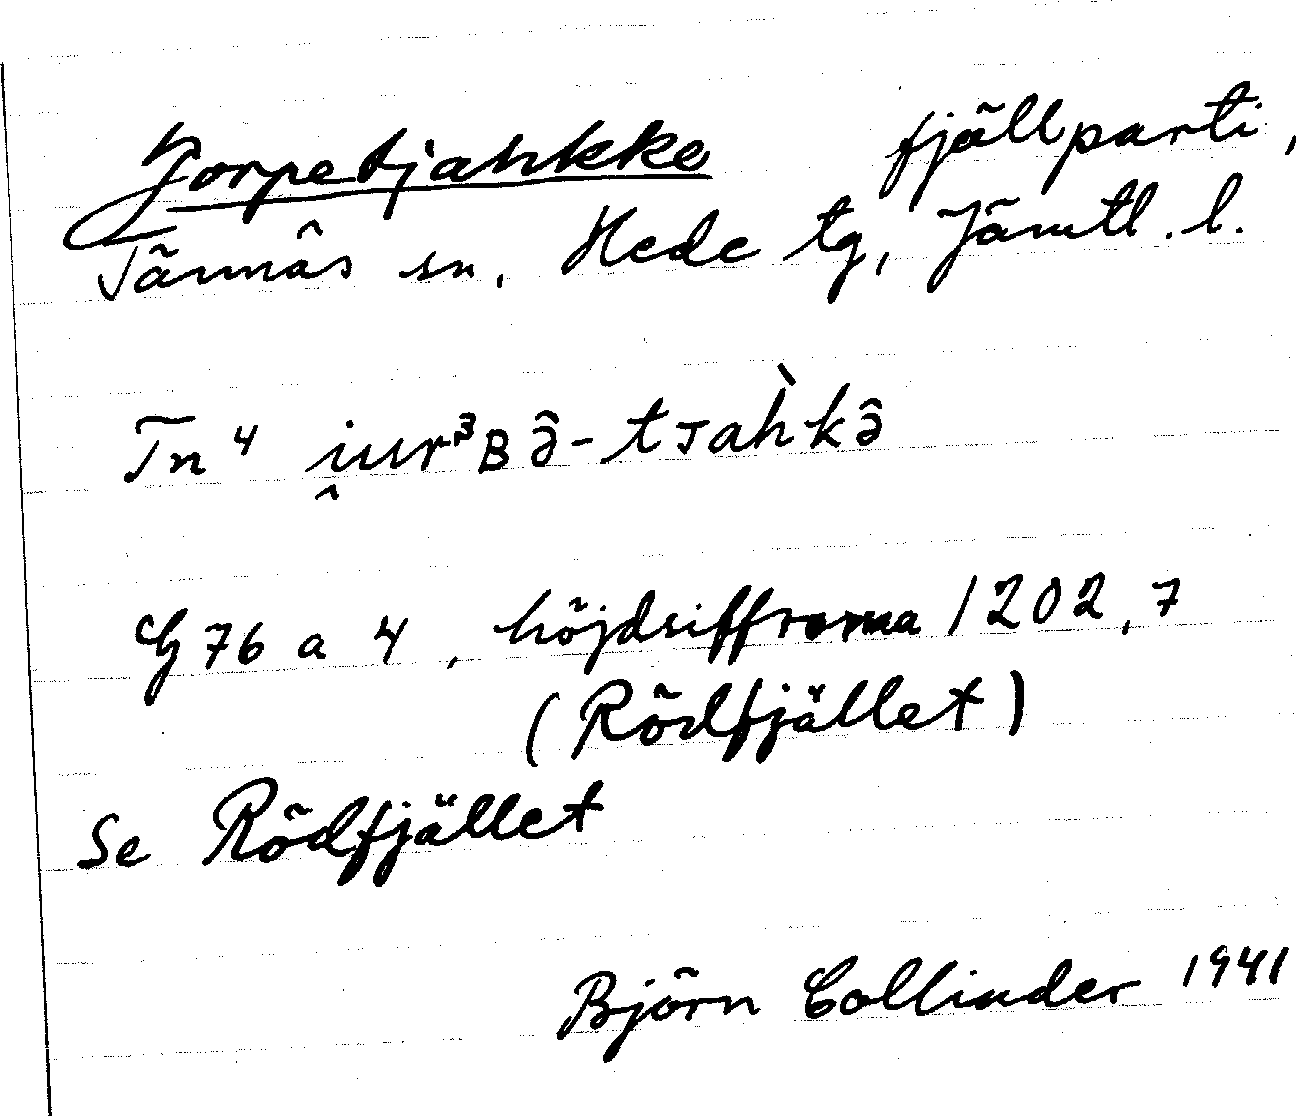 Jorpetjahkke fjällparti,
Tännäs sn, Hede tg, Jämtl. l.
Tn⁴ i̭ur³ʙə̂-tᴊah̀kə̂
G 76 a 4, höjdsiffrorna 1202,7
(Rödfjället)
Se Rödfjället
Björn Collinder 1941